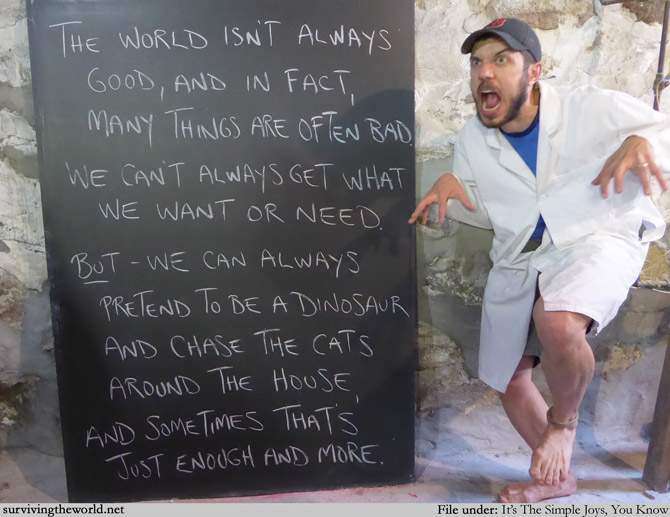 THE WORLD ISN'T ALWAYS
GOOD, AND IN FACT,
MANY THINGS ARE OFTEN BAD.
WE CAN'T ALWAYS GET WHAT
WE WANT OR NEED.
BUT - WE CAN ALWAYS
PRETEND TO BE A DINOSAUR
AND CHASE THE CATS
AROUND THE HOUSE,
AND SOMETIMES THAT'S
JUST ENOUGH AND MORE.
survivingtheworld.net
File under: It's The Simple Joys, You Know